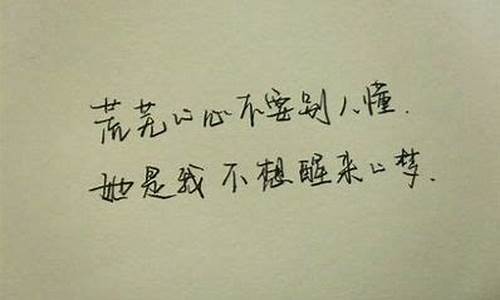 荒芜的心不要别人懂.
她是我不想醒来的梦.